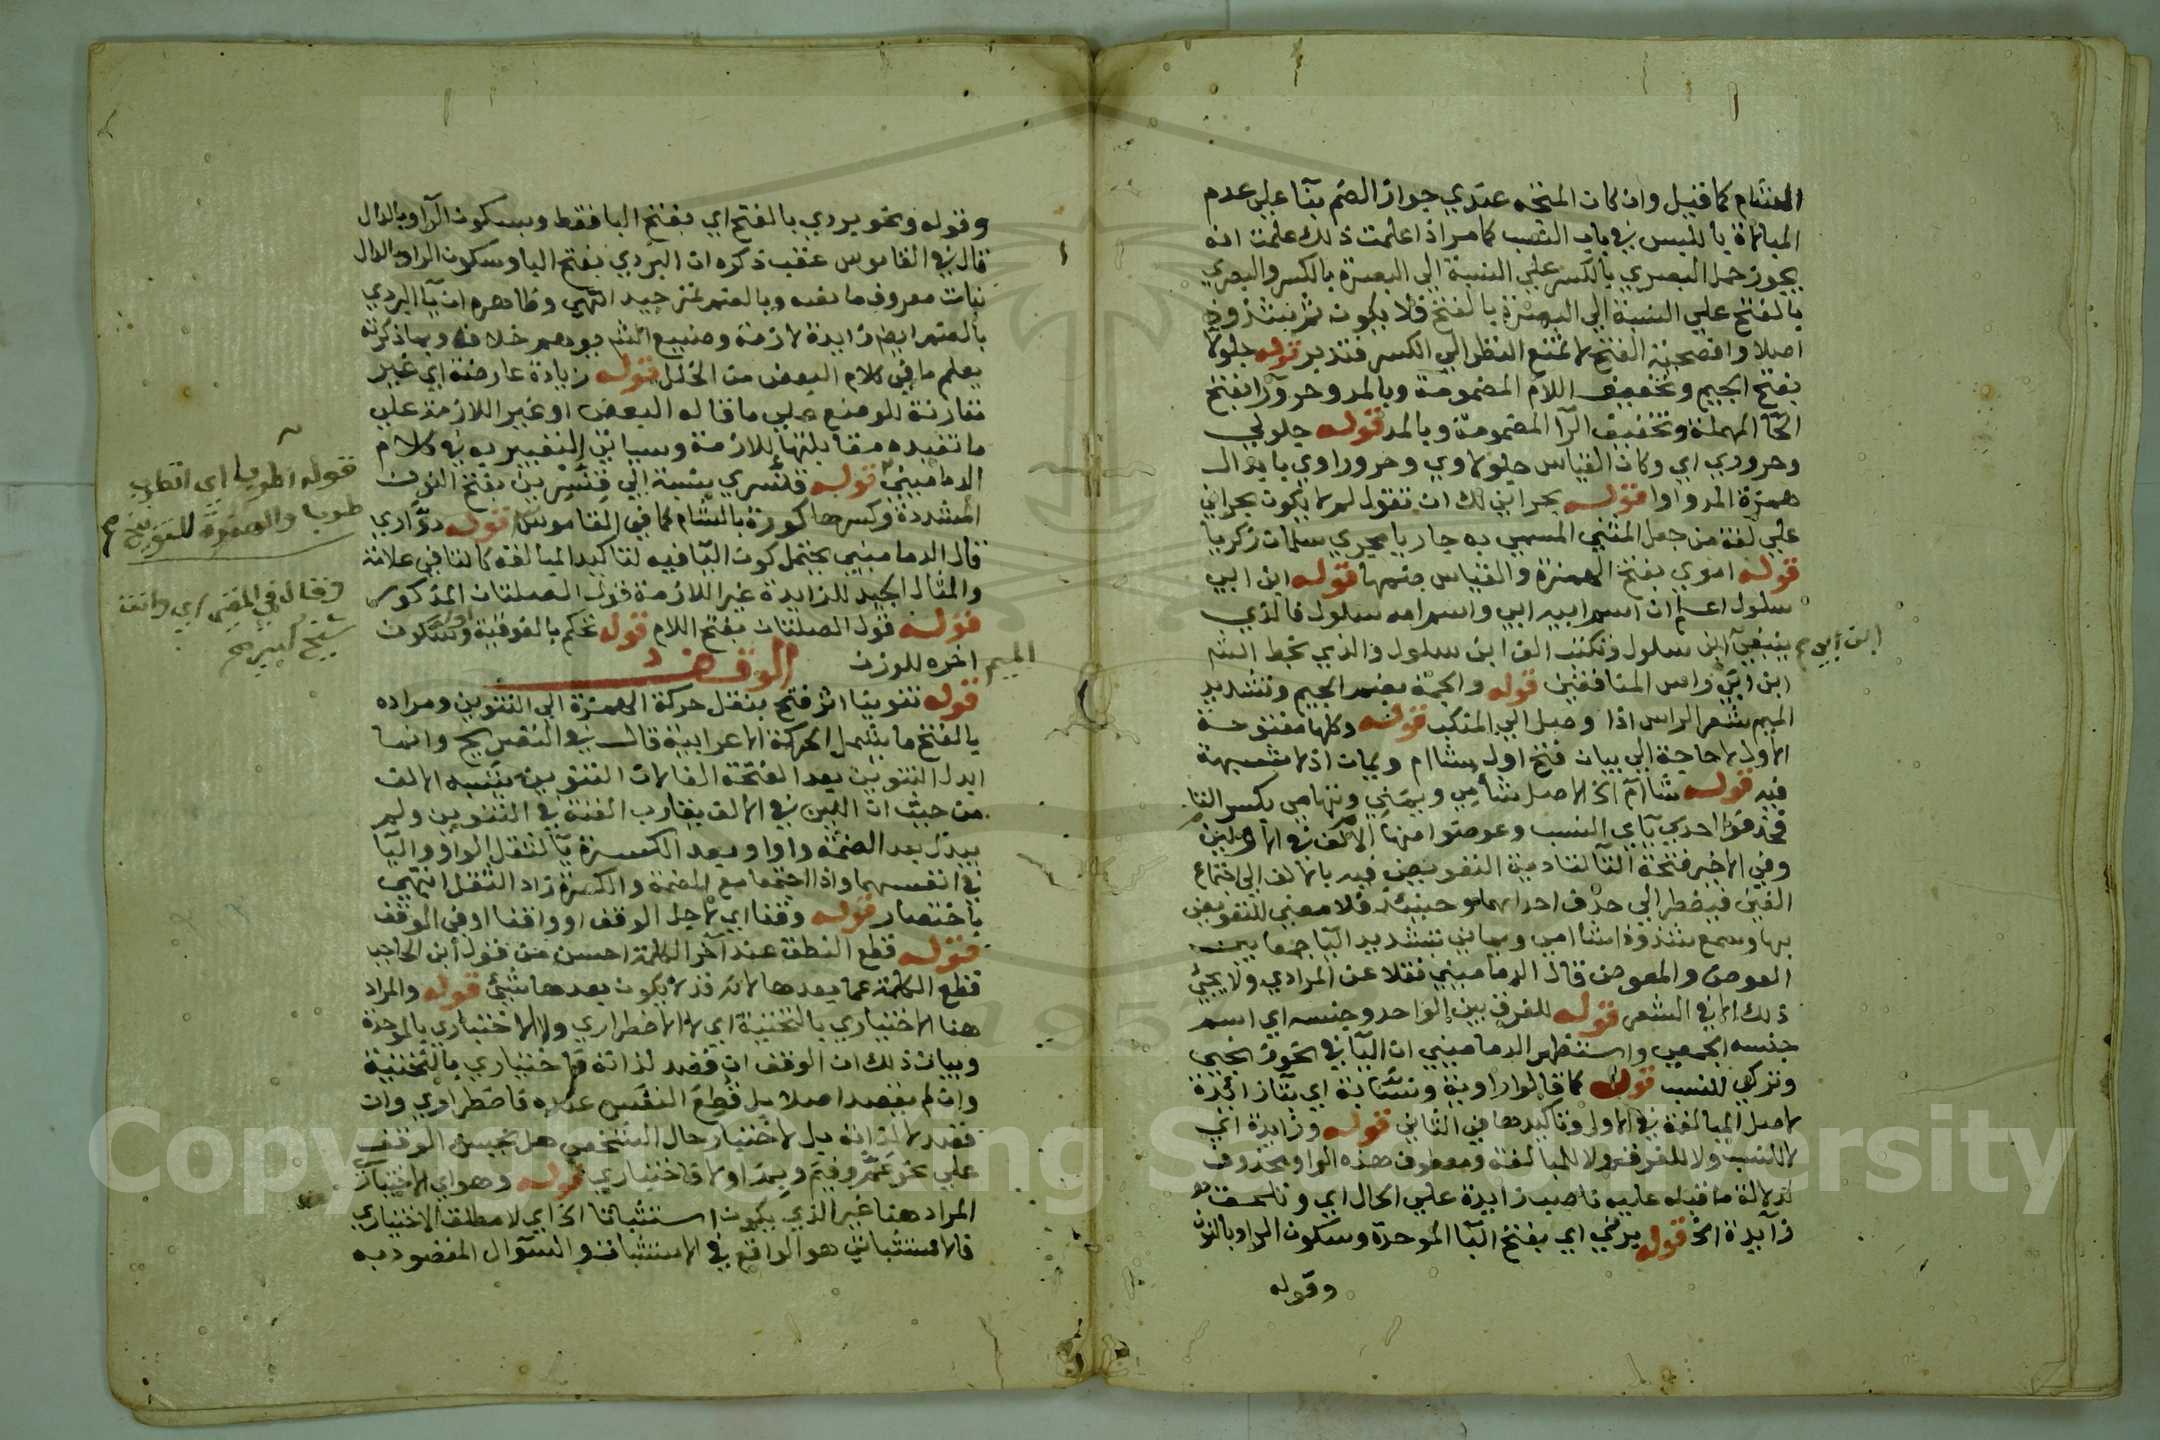 المنشام كما قيل وان كان المتجه عندي جواز الضم بنا على عدم
المبالاة بالليس في باب النسب كما مر اذا علمت ذلك علمت انه
يجوز حمل البصري بالكسر على النسبة الى البصرة بالكسر والبصري
بالفتح على النسبة الى البصرة بالفتح فلا يكون ثم شذوذ
اصلا وافصحية الفتح لا تمنع النظر الى الكسر فتدبر قوله جلولا
بفتح الجيم وتخفيف اللام المضمومة وبالمد وحرورا بفتح
الحا المهملة وتخفيف الرا المضمومة وبالمد قوله جلولي
وحروري اي وكان القياس جلولاوي وحروراوي بابدال
همزة المد واوا قوله بحراني لك ان تقول لم لا يكون بحراني
على لغة من جعل المثنى المسمى به جاريا مجرى سلمان زكريا
قوله اموي بفتح الهمزة والقياس ضمها قوله ابن ابي
سلول اعلم ان اسم ابيه ابي واسم امه سلول فالذي
ينبغي ابن سلول وتكتب الف ابن سلول والذي بخط الشم
ابن ابي م
ابن ابي راس المنافقين قوله والجمة بضم الجيم وتشديد
الميم شعر الراس اذا وصل الى المنكب قوله وكلها مفتوحة
الاول لا حاجة الى بيان فتح اول شاام ويمان اذ لا شبهة
فيه قوله شاام الخ الاصل شأمي ويمني وتهامي بكسر التا
فحذفوا احدى ياي النسب وعوضوا منها الالف في الاولين
وفي الاخير فتحة التا لتادية التعويض فيه بالالف الى اجتماع
الفين فيضطر الى حذف احداهما وحينئذ فلا معنى للتعويض
بها وسمع شذوذا شاامي ويماني بتشديد اليا جمعا بين
العوض والمعوض قال الدماميني نقلا عن المرادي ولا يجئ
ذلك الا في الشعر قوله للفرق بين الواحد وجنسه اي اسم
جنسه الجمعي واستظهر الدماميني ان اليا في نحو زنجي
وتركي للنسب قوله كما قالوا راوية ونسابة اي بتاز ائدة
لاصل المبالغة في الاول وتاكيدها في الثاني قوله وزايدة اي
لا للنسب ولا للفرق ولا للمبالغة ومعطوف هذه الواو محذوف
لدلالة ما قبله عليه ناصب زايدة على الحال اي وتلحق
زآيدة الخ قوله برني اي بفتح البا الموحدة وسكون الرا وبالنون
وقوله
وقوله ونحو بردي بالفتح اي بفتح البا فقط وبسكون الرا وبالدال
قال في القاموس عقب ذكره ان البردي بفتح البا وسكون الرا وبالدال
نبات معروف ما نصه وبالضم تمر جيد انتهى وظاهره ان يا البردي
بالضم ايضا زايدة لازمة وصنيع الشم يوهم خلافه وبما ذكرته
يعلم ما في كلام البعض من الخلل قوله زيادة عارضة اي غير
مقارنة للوضع على ما قاله البعض او غير اللازمة على
ما تفيده مقابلتها للازمة وسياتي التعبير به في كلام
الدماميني قوله قنسري نسبة الى قنسرين بفتح النون
المشددة وكسرها كورة بالشام كما في القاموس قوله دواري
قال الدماميني يحتمل كون اليا فيه لتاكيد المبالغة كالتا في علامة
والمثال الجيد للزايدة غير اللازمة قول الصلتان المذكور
قوله قول الصلتان بفتح اللام قوله تحكم بالفوقية وسكون
الميم اخره للوزن الوقف
قوله تنوينا اثر فتح بنقل حركة الهمزة الى التنوين ومراده
بالفتح ما يشمل الحركة الاعرابية قال في التصريح وانما
ابدل التنوين بعد الفتحة الفا لان التنوين يشبه الالف
من حيث ان اللين في الالف يقارب الغنة في التنوين ولم
يبدل بعد الضمة واوا وبعد الكسرة يا لثقل الواو واليا
في انفسهما واذا اجتمعا مع الضمة والكسرة زاد الثقل انتهى
باختصار قوله وقفا اي لاجل الوقف او واقفا او في الوقف
قوله قطع النطق عند آخر الكلمة احسن من قول ابن الحاجب
قطع الكلمة عما بعدها لانه قد لا يكون بعدها شئ قوله والمراد
هنا الاختياري بالتحتية اي لا الاضطراري ولا الاختباري بالموحدة
وبيان ذلك ان الوقف ان قصد لذاته فاختياري بالتحتية
وان لم يقصد اصلا بل قطع النفس عنده فاضطراري وان
قصد لا لذاته بل لاختبار حال الشخص هل يحسن الوقف
على نحو عم وفيم وبم اولا فاختباري قوله وهو اي الاختياري
المراد هنا غير الذي يكون استثباتا الخ اي لا مطلق الاختياري
فالاستثباتي هو الواقع في الاستثبات والسؤال المقصود به
قوله اطربا اي اتطرب
طربا والهمزة للتوبيخ م
وقال في المغني اي وانت
شيخ كبير